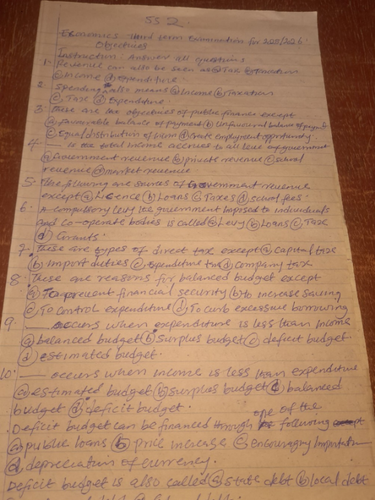 SS 2
Economics third term Examination for 2025/2026
Objectives
Instruction Answer all questions
1. Revenue can also be seen as (a) Tax (b) Taxation
(c) Income (d) Expenditure
2. Spending also means (a) Income (b) Taxation
(c) Tax (d) Expenditure
3. These are the objectives of public finance except
(a) favourable balance of payment (b) unfavourable balance of payment
(c) Equal distribution of income (d) create employment opportunity
4. — is the total income accrues to all level of government
(a) Government revenue (b) private revenue (c) school
revenue (d) market revenue
5. The following are sources of Government revenue
except (a) Licence (b) Loans (c) Taxes (d) school fees
6. A compulsory levy the government imposed to individuals
and co-operate bodies is called (a) Levy (b) Loans (c) Tax
(d) Grants.
7. These are types of direct tax except (a) capital tax
(b) import duties (c) expenditure tax (d) company tax
8. These are reasons for balanced budget except
(a) To prevent financial security (b) to increase saving
(c) To control expenditure (d) To curb excessive borrowing
9. — occurs when expenditure is less than income
(a) balanced budget (b) surplus budget (c) deficit budget
(d) estimated budget
10. — occurs when income is less than expenditure
(a) estimated budget (b) surplus budget (c) balanced
budget (d) deficit budget.
Deficit budget can be financed through one of the following except
(a) public loans (b) price increase (c) encouraging importation
(d) depreciation of currency.
Deficit budget is also called (a) state debt (b) local debt